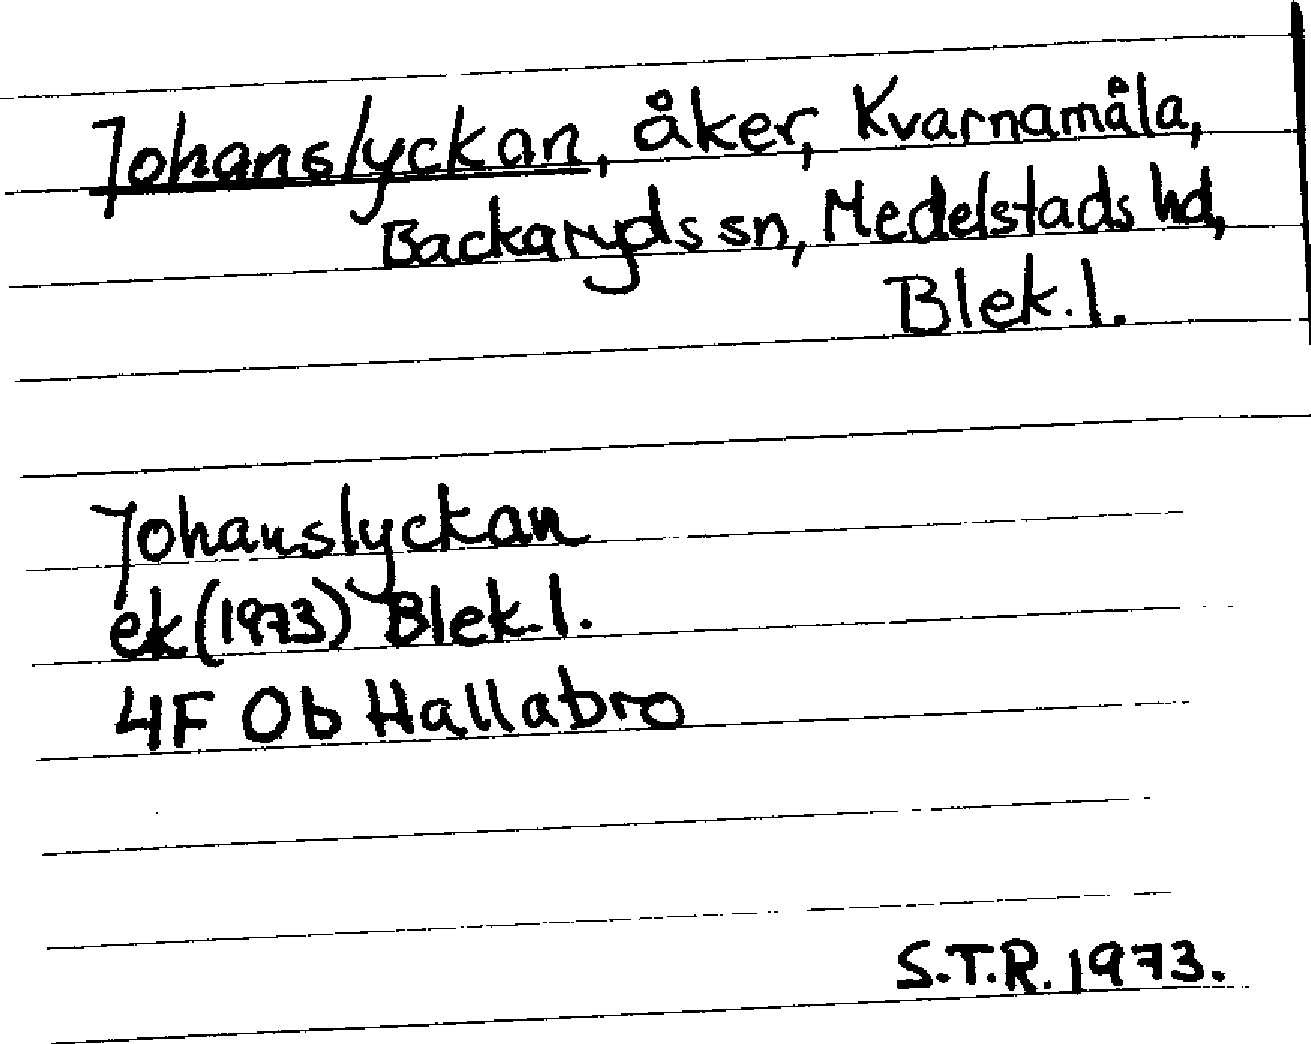 Johanslyckan, åker, Kvarnamåla,
Backaryds sn, Medelstads hd,
Blek. l.
Johanslyckan
ek (1973) Blek. l.
4F Ob Hallabro
S.T.R. 1973.